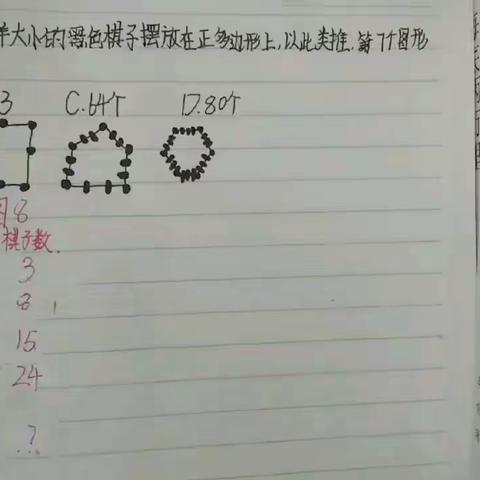 样大小的黑色棋子摆放在正多边形上,以此类推.第7个图形
3 C.64个 D.80个
8
棋子数.
3
8
15
24
...?